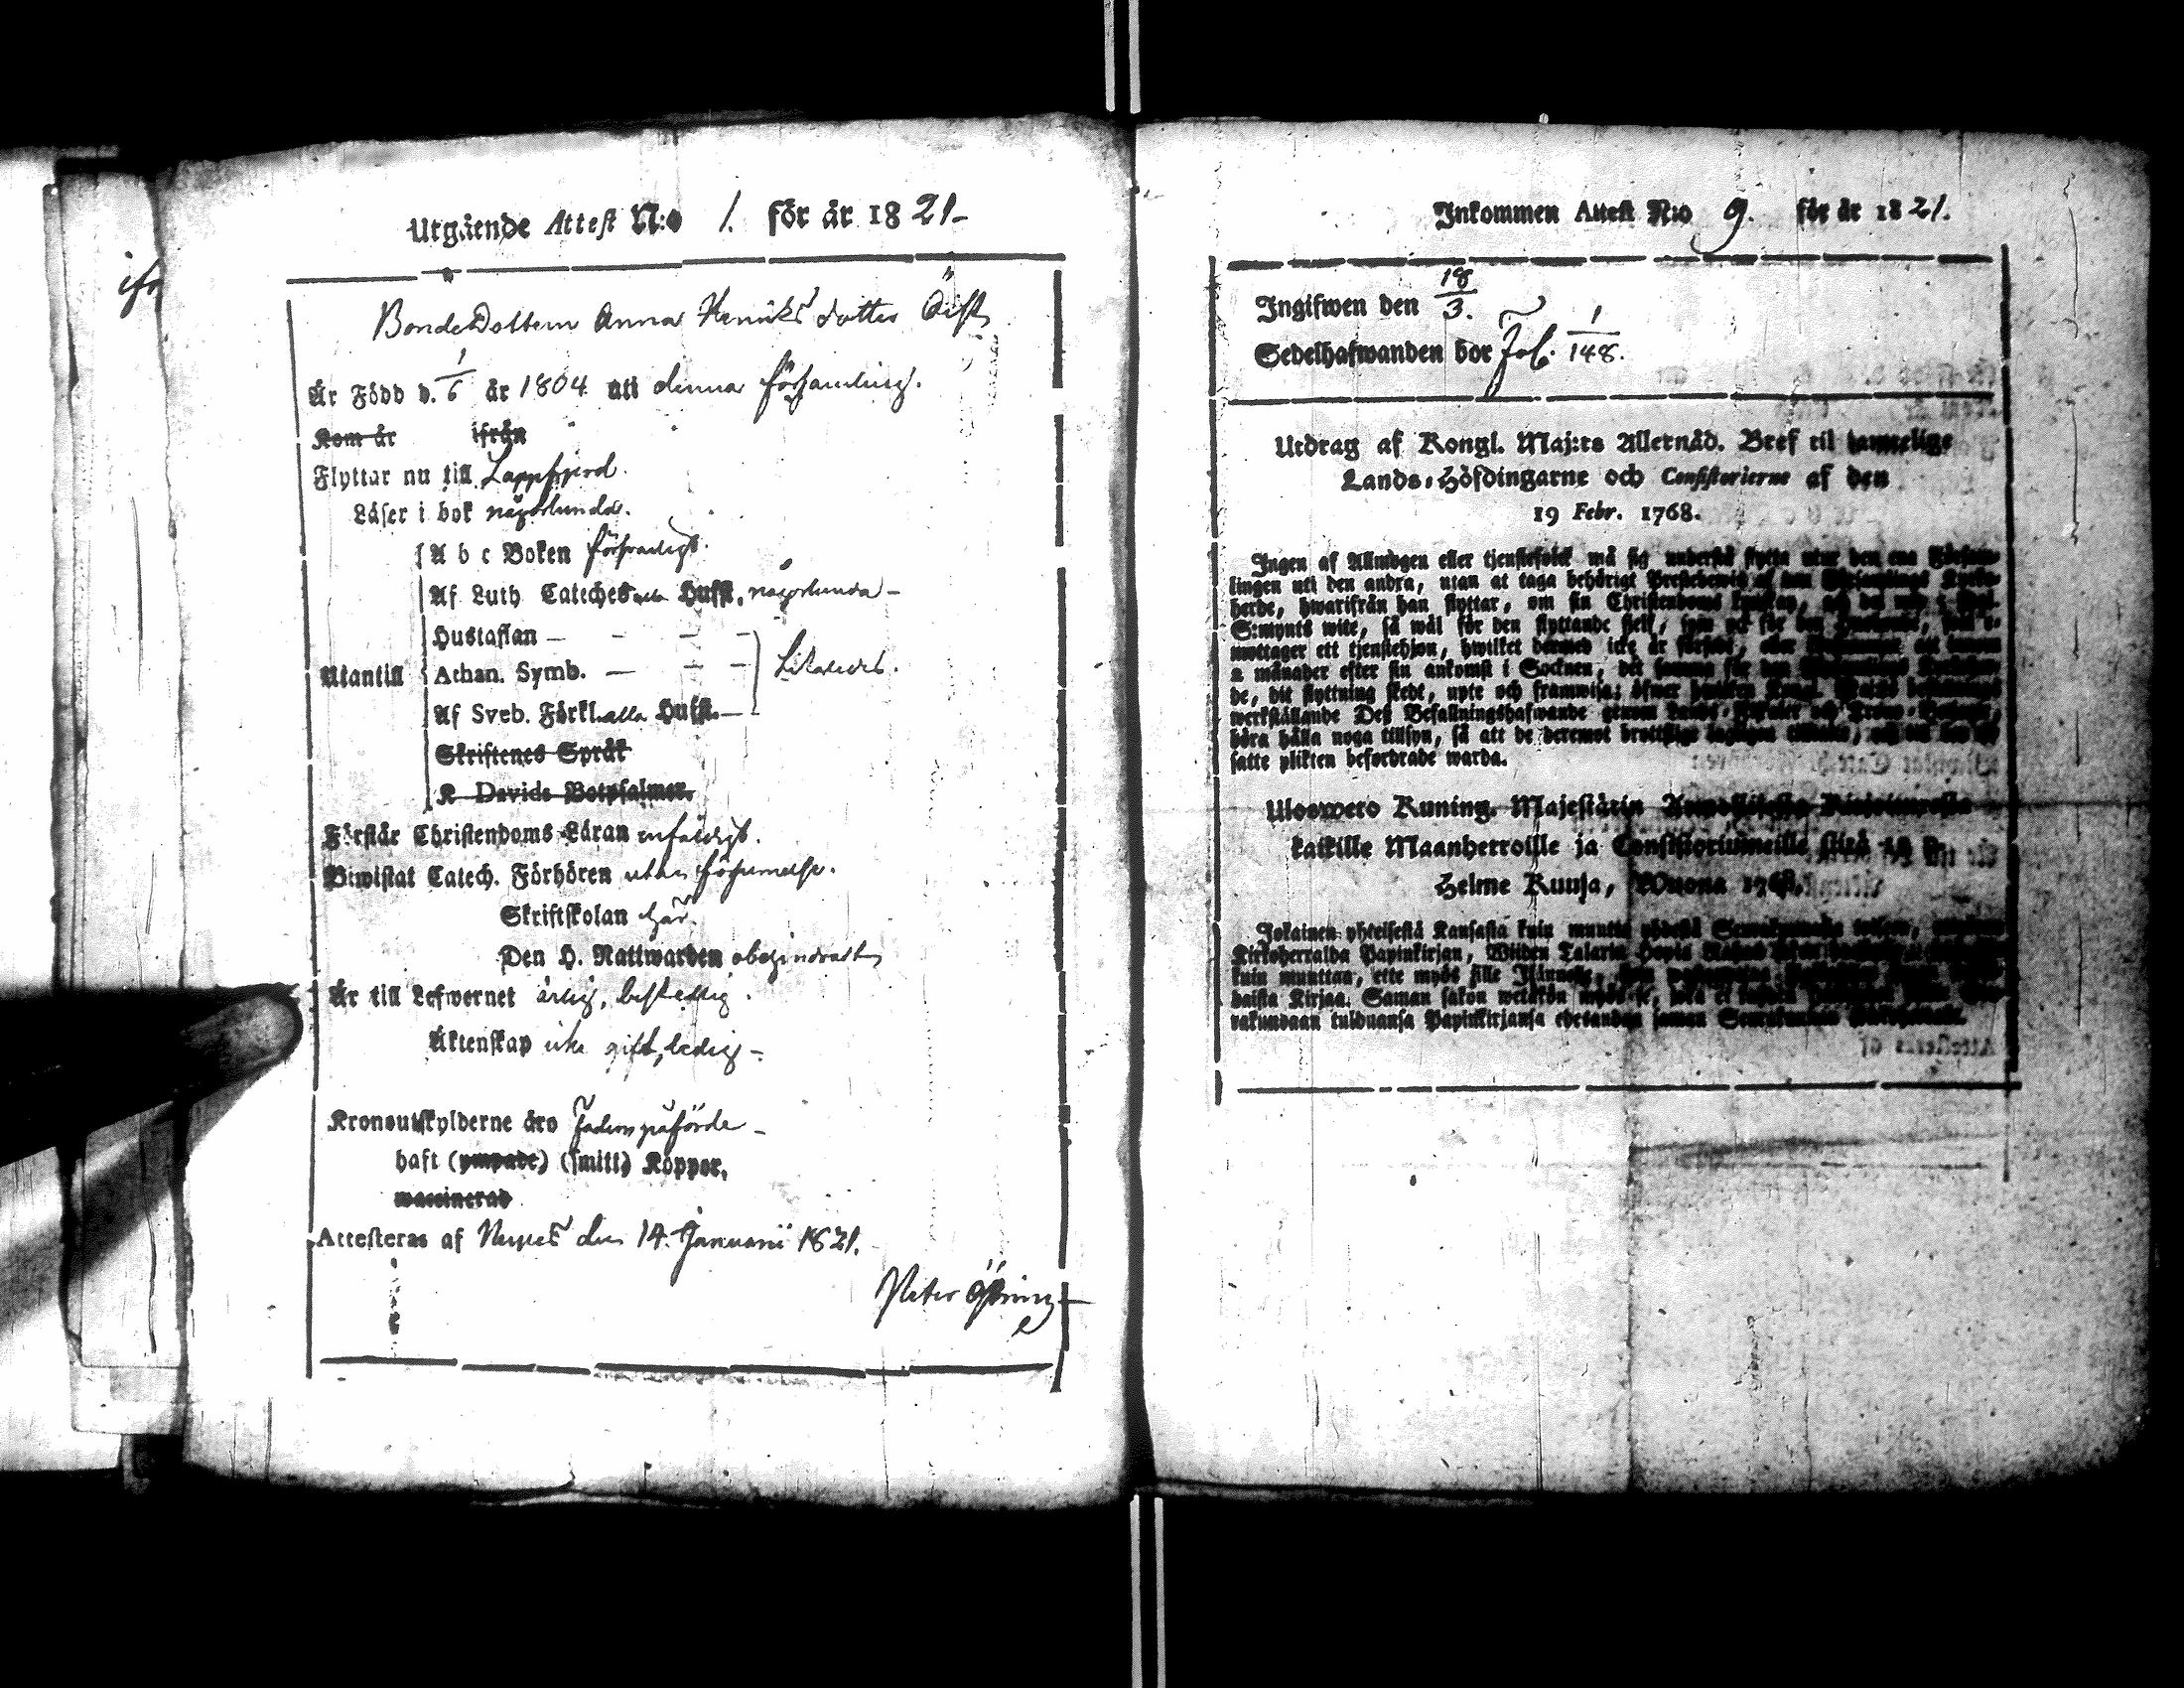 Utgående Attest N:o 1. för år 1821-
BondeDottern Anna Henriks dotter Öist
Är Född d. 1/6 år 1804 uti denna församling.
Kom år ifrån
Flyttar nu till Lappfjerd.
Läser i bok någorlunda.
A b c Boken försvarligt.
Af Luth Cateches Hufst. någorlunda -
Hustaflan - - - -
Utantill Athan. Symb. - - - Likaledes.
Af Sveb. Förkl. alla Hufst. -
Skriftenes Språk
K Davids Botpsalmer.
Förstår Christendoms Läran enfaldigt.
Biwistat Catech. Förhören utan försummelse.
Skriftskolan här.
Den H. Nattwarden obehindradt
Är till Lefwernet ärlig, beskedlig.
Äktenskap icke gift, ledig -
Kronoutskylderne äro Fadren påförde -
haft (ympade) (smitt) Koppor.
waccinerad
Attesteras af Nerpes den 14. Januarii 1821.
Peter
Inkommen Attest N:o 9. för år 1821.
Ingifwen den 18/3.
Sedelhafwanden bor Fol. 1/148.
Utdrag af Kongl. Maj:ts Allernåd. Bref til samtelige
Lands-Höfdingarne och Consistorierne af den
19 Febr. 1768.
Ingen af Allmogen eller tjenstefolck må sig understå flytta utur den ena Försam-
lingen uti den andra, utan at taga behörigt Prestebewis af den Församlings Kyrko-
herde, hwarifrån han flyttar, om sin Christendoms kunskap,
S:mynts wite, så wäl för den flyttande sielf, som
mottager ett tjenstehjon, hwilket dermed icke är försedt, eller
2 månader efter sin ankomst i Socknen, det samma för
de, dit flyttning skedt, upte och framwisa; öfwer hwilken
werkställande Deß Befallningshafwande genom Lands-
böra hålla noga tillsyn, så att de deremot brottslige
satte plikten befordrade warda.
Ulosweto Kuning. Majestätin
kaikille Maanherroille ja Consistoriumeille, siitä 19 p.
Helme Kuusa, Wuona 1768.
Jokainen yhteisestä Kansasta kuin muutta yhdestä Seurakunnasta
Kirkoherralda Papinkirjan, Wiiden Talarin Hopia
kuin muuttaa, ette myös sille Isännelle,
daista Kirjaa. Saman sakon wetäkön myös se, joka ei
rakundaan tulduansa Papinkirjansa edesanda saman Seurakunnan